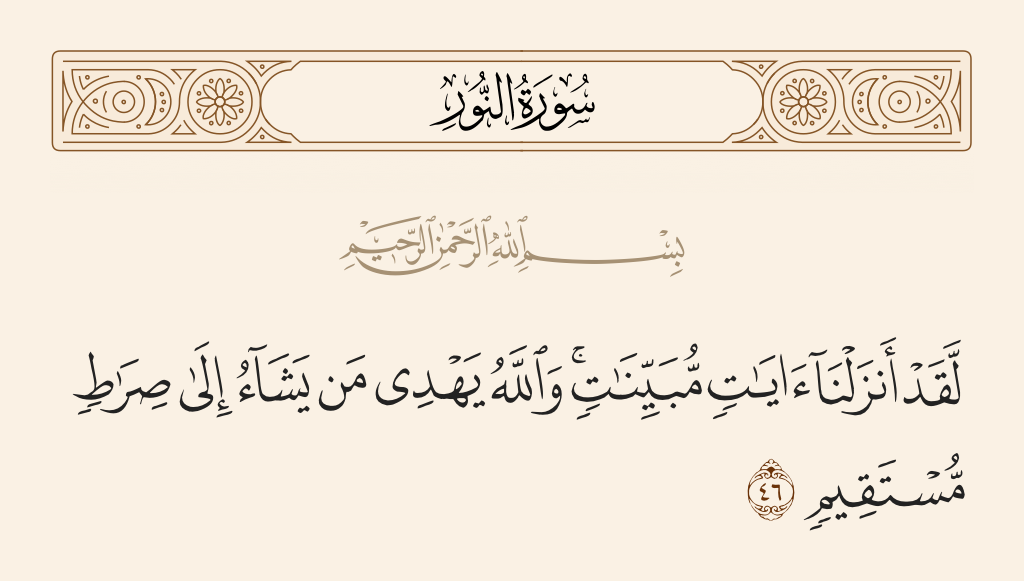 سُورَةُ النُّورِ
بِسْمِ ٱللَّهِ ٱلرَّحْمَٰنِ ٱلرَّحِيمِ
لَّقَدْ أَنزَلْنَآ ءَايَٰتٍ مُّبَيِّنَٰتٍ ۚ وَٱللَّهُ يَهْدِى مَن يَشَآءُ إِلَىٰ صِرَٰطٍ
مُّسْتَقِيمٍ ٤٦